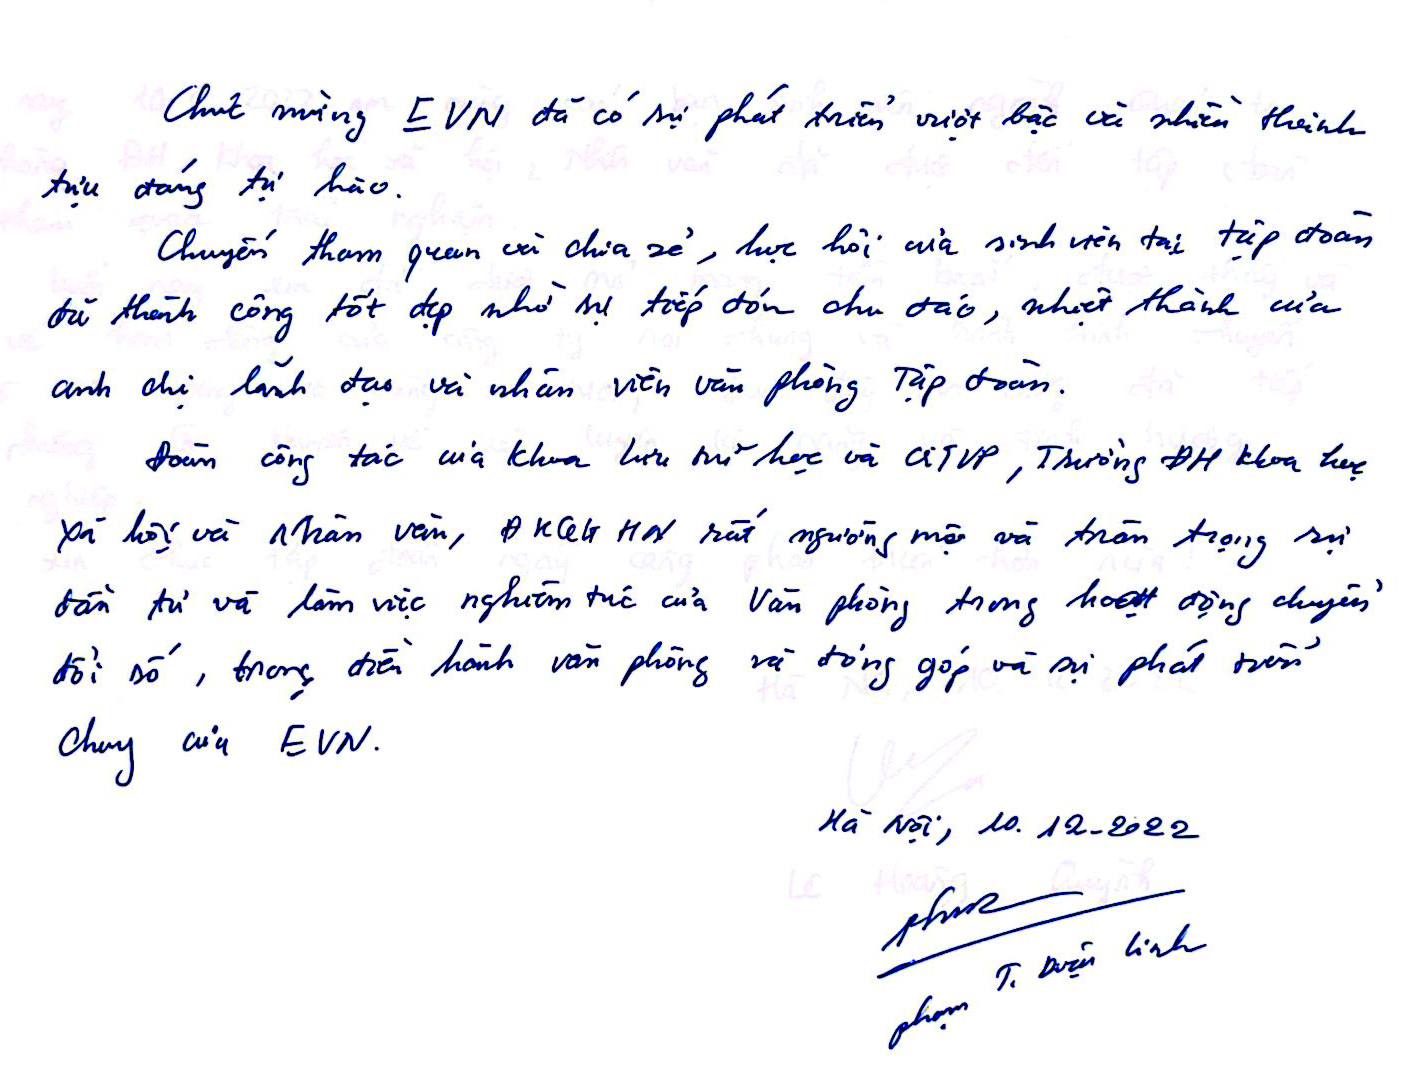 Chúc mừng EVN đã có sự phát triển vượt bậc và nhiều thành
tựu đáng tự hào.
Chuyến tham quan và chia sẻ, học hỏi của sinh viên tại Tập đoàn
đã thành công tốt đẹp nhờ sự tiếp đón chu đáo, nhiệt thành của
anh chị lãnh đạo và nhân viên văn phòng Tập đoàn.
Đoàn công tác của Khoa Lưu trữ học và QTVP, Trường ĐH Khoa học
Xã hội và Nhân văn, ĐHQG HN rất ngưỡng mộ và trân trọng sự
đầu tư và làm việc nghiêm túc của Văn phòng trong hoạt động chuyển
đổi số, trong điều hành văn phòng và đóng góp và sự phát triển
chung của EVN.
Hà Nội, 10.12-2022
Phạm T. Linh